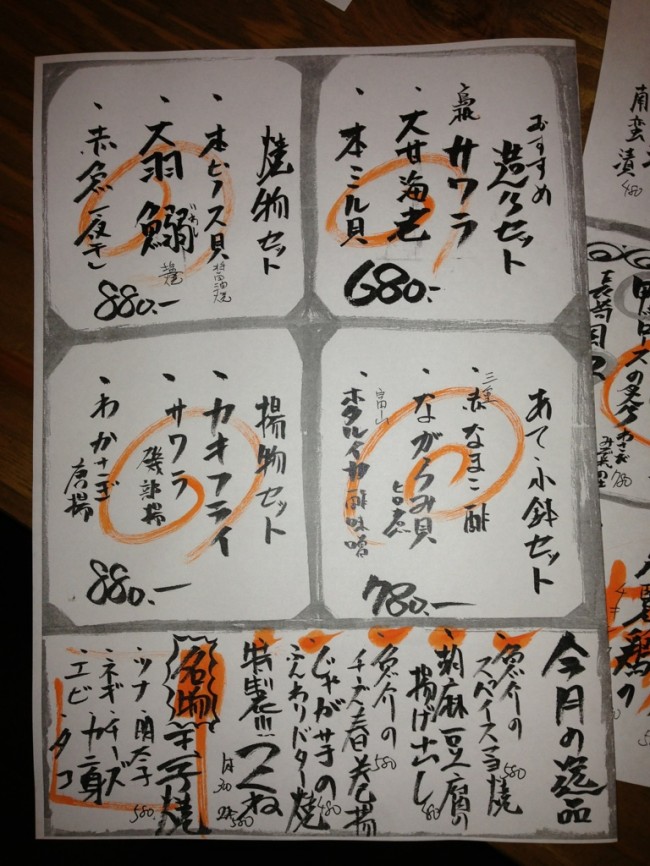 おすすめ
造りセット
サワラ
・大甘海老
・本ミル貝
680.-
焼物セット
・本ビノス貝
醤油焼
・大羽鰯
いわし
塩焼
・赤魚一夜干し
880.-
あて・小鉢セット
・三重
赤なまこ酢
・ながらみ貝
旨煮
・富山
ホタルイカ酢味噌
780.-
揚物セット
・カキフライ
・サワラ
磯部揚
・わかさぎ
唐揚
880.-
今月の逸品
・魚介の
スパイス玉子焼
580
・胡麻豆腐の
揚げ出し
480
・魚介の
チーズ春巻揚
380
・じゃが芋の
ふんわりバター焼
480
・特製!!!つくね
580
名物
玉子焼
・ツナ・明太子
・ネギ・チーズ
エビ・タコ
580.
南蛮漬
480
鴨ロースの
780
鶏の